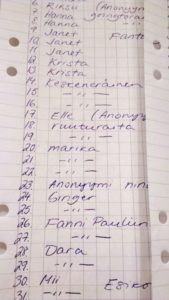 6. Riksu (Anonyym
7. Hanna
8. Hanna - " -
9. Janet Fanto
10. Janet
11. Janet
12. Krista
13. Krista
14. Keskeneräinen
15. - " -
16. - " -
17. Elle (Anony
18. ruuturaita
19. - " -
20. marika
21. - " -
22. - " -
23. Anonyymi nim
24. Ginger
25. - " -
26. Fanni Pauliin
27. - " -
28. Dara
29. - " -
30. Mii Esiko
31. - " -